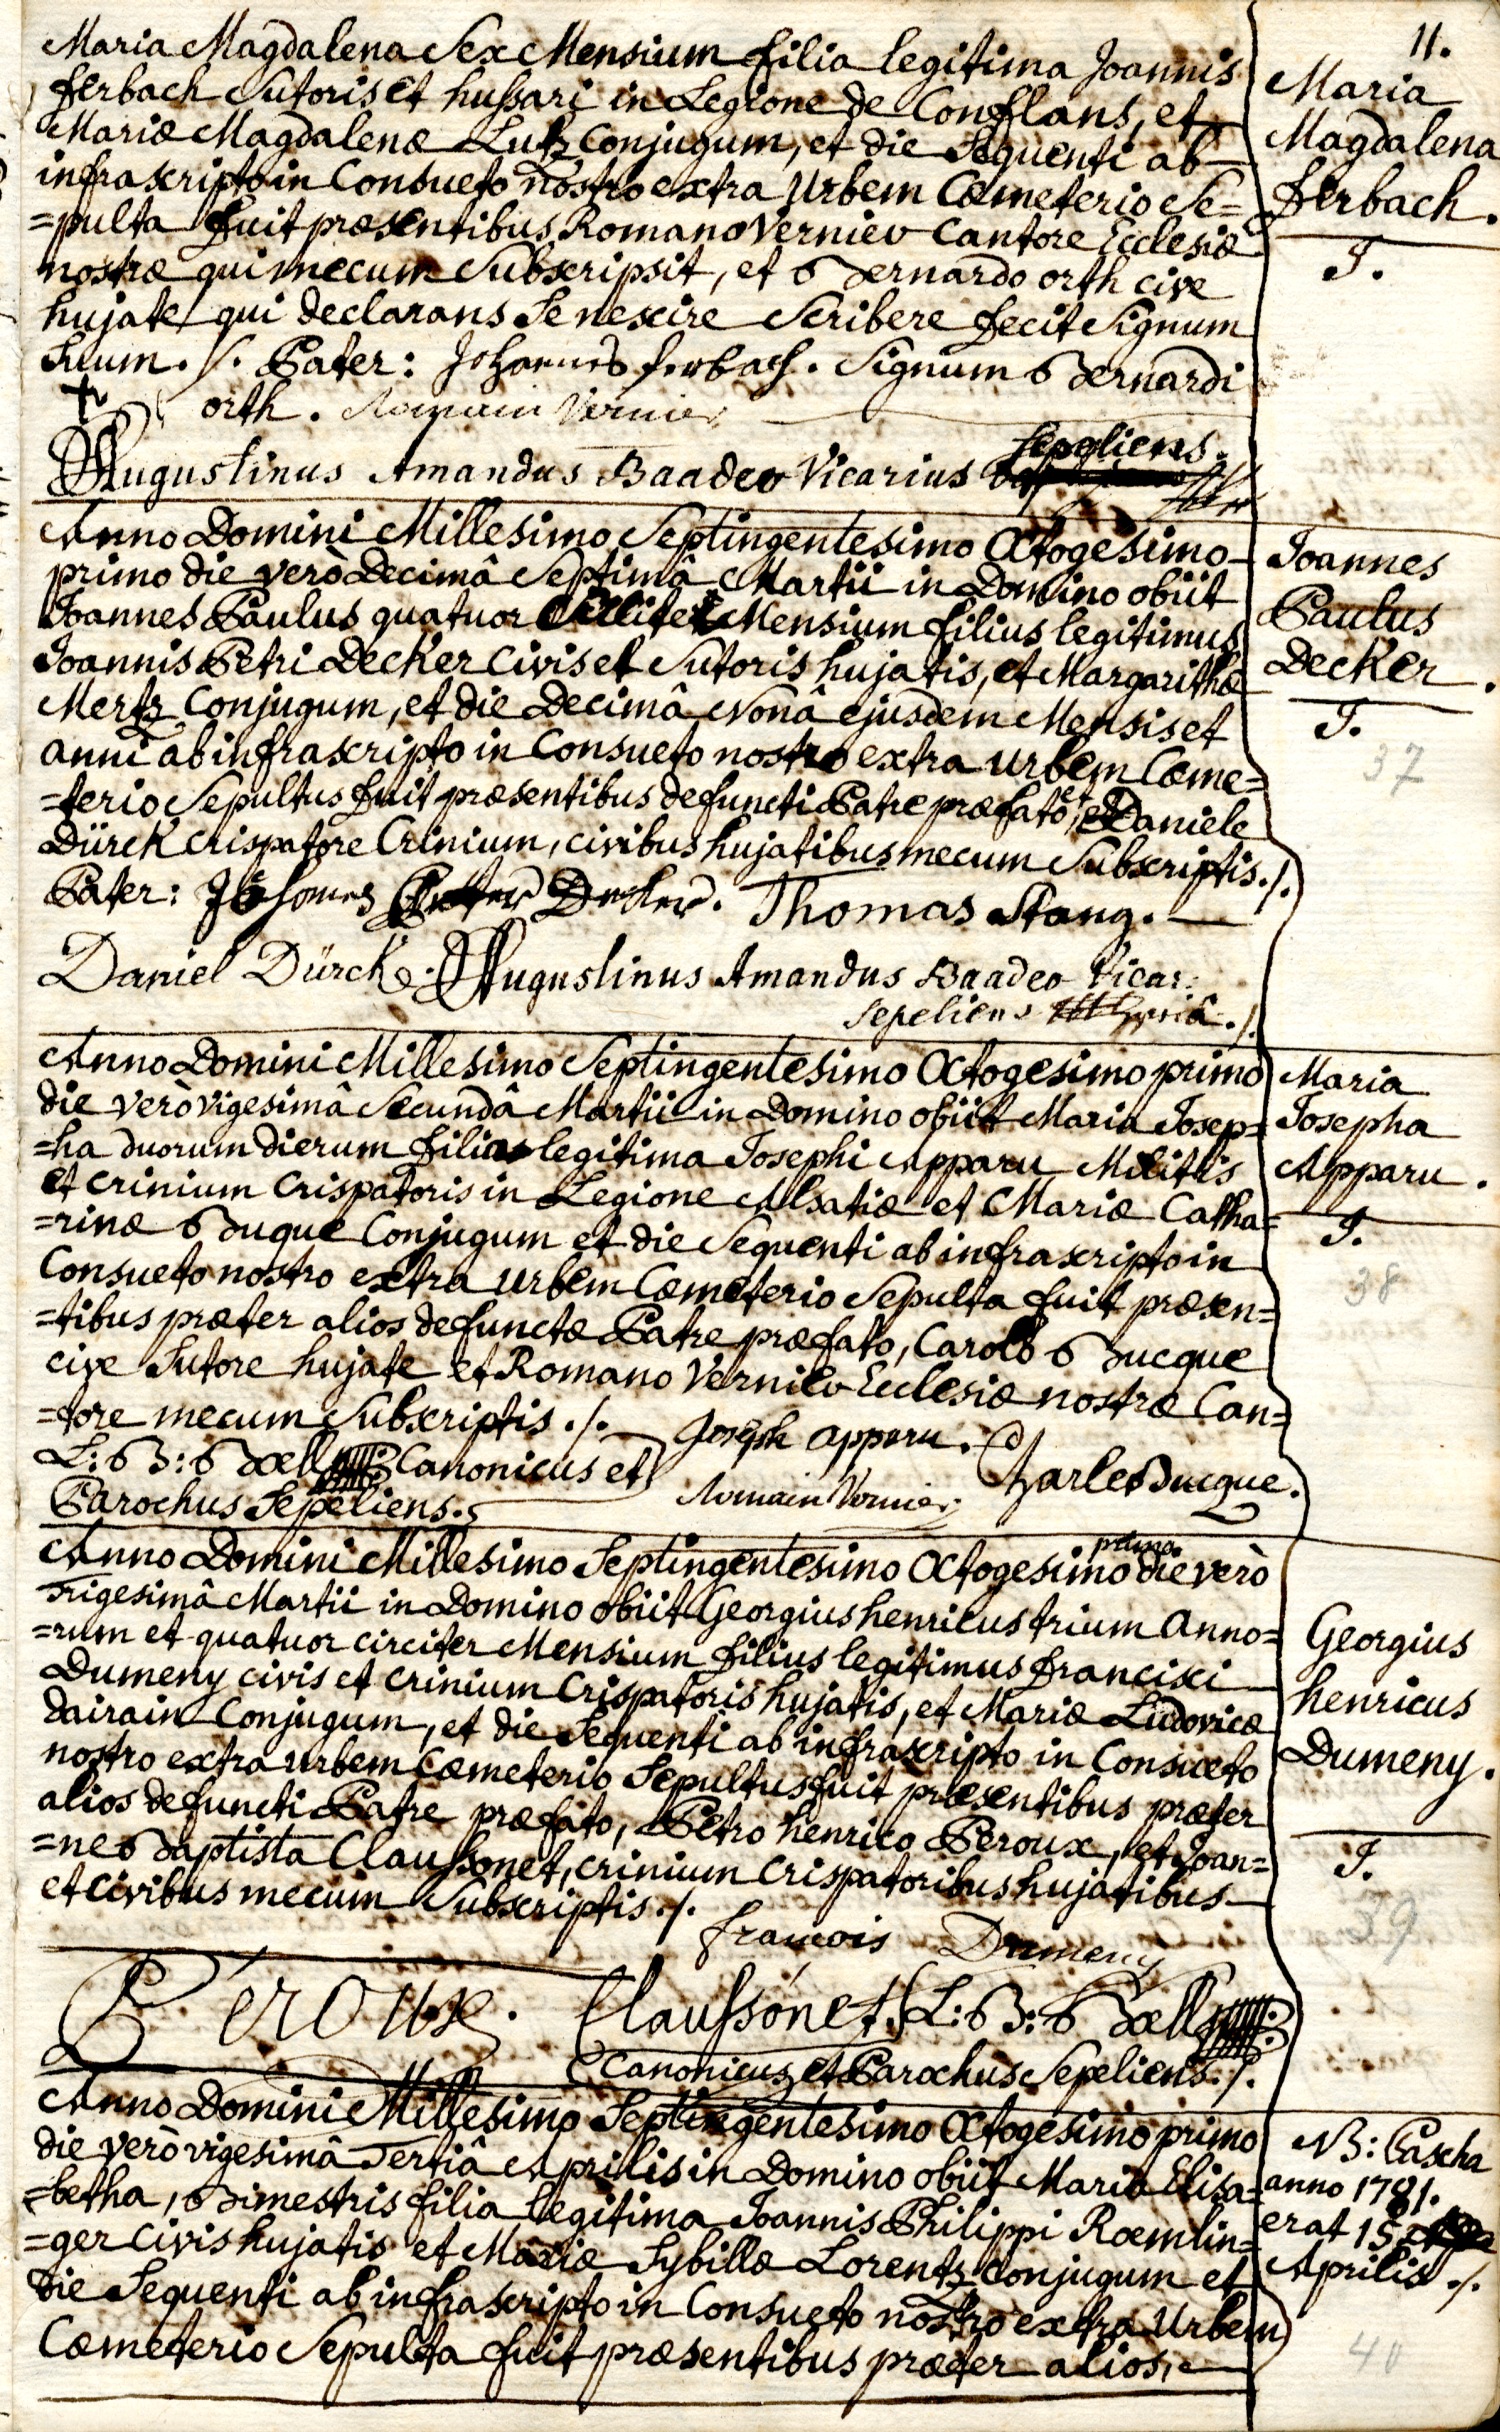 11.
Maria Magdalena Sex Mensium filia legitima Joannis
ferbach Sutoris et hussari in Legione de Conflans, et
Mariæ Magdalenæ Lutz Conjugum, et die Sequenti ab
infrascripto in Consueto nostro extra Urbem Cœmeterio Se=
=pulta fuit præsentibus Romano Vernier Cantore Ecclesiæ
nostræ qui mecum Subscripsit, et Bernardo orth cive
hujate qui declarans Se nescire Scribere fecit Signum
Suum ./. Pater: Johannes ferbach. Signum Bernardi
+ orth. Romain Vernier
Augustinus Amandus Baader Vicarius Sepeliens.
Maria
Magdalena
ferbach.
J.
Anno Domini Millesimo Septingentesimo Octogesimo
primo die verò Decimâ Septimâ Martii in Domino obiit
Joannes Paulus quatuor Mensium filius legitimus
Joannis Petri Decker Civis et Sutoris hujatis, et Margarithæ
Mertz Conjugum, et die Decimâ Nonâ ejusdem Mensis et
anni ab infrascripto in Consueto nostro extra urbem Cœme=
=terio Sepultus fuit præsentibus defuncti Patre præfato, et Daniele
Dürck Crispatore Crinium, civibus hujatibus mecum Subscriptis ./.
Pater: Johannes Petter Decker. Thomas Stang.
Daniel Dürck. Augustinus Amandus Baader Vicar:
Sepeliens ./.
Joannes
Paulus
Decker.
J.
37
Anno Domini Millesimo Septingentesimo Octogesimo primo
die verò vigesimâ Secundâ Martii in Domino obiit Maria Josep=
=ha duorum dierum filia legitima Josephi Apparu Militis
et Crinium Crispatoris in Legione Alsatiæ et Mariæ Catha=
=rinæ Buque Conjugum et die Sequenti ab infrascripto in
Consueto nostro extra urbem Cœmeterio Sepulta fuit præsen=
=tibus præter alios defunctæ Patre præfato, Carolo Bucque
cive Sutore hujate et Romano Vernier Ecclesiæ nostræ Can=
=tore mecum Subscriptis ./. Joseph apparu.
L: B: Bœll Canonicus et Charle Bucque.
Parochus Sepeliens. Romain Vernier
Maria
Josepha
Apparu.
J.
38
Anno Domini Millesimo Septingentesimo Octogesimo primo die verò
Trigesimâ Martii in Domino obiit Georgius henricus trium Anno=
=rum et quatuor circiter Mensium filius legitimus francisci
Dumeny civis et Crinium Crispatoris hujatis, et Mariæ Ludovicæ
dairain Conjugum, et die Sequenti ab infrascripto in Consueto
nostro extra urbem Cœmeterio Sepultus fuit præsentibus præter
alios defuncti Patre præfato, Petro henrico Peroux, et Joan=
=ne Baptista Claussonet, crinium Crispatoribus hujatibus
et Civibus mecum Subscriptis ./.
francois Dumeny
Peroux. Claussonet. L: B: Bœll
Canonicus et Parochus Sepeliens ./.
Georgius
henricus
Dumeny.
J.
39
Anno Domini Millesimo Septingentesimo Octogesimo primo
die verò vigesimâ Tertiâ Aprilis in Domino obiit Maria Elisa=
=betha, Bimestris filia legitima Joannis Philippi Rœmlin=
=ger Civis hujatis et Mariæ Sybillæ Lorentz Conjugum et
die Sequenti ab infrascripto in Consueto nostro extra Urbem
Cœmeterio Sepulta fuit præsentibus præter alios,
NB: Pascha
anno 1781.
erat 15
Aprilis ./.
40